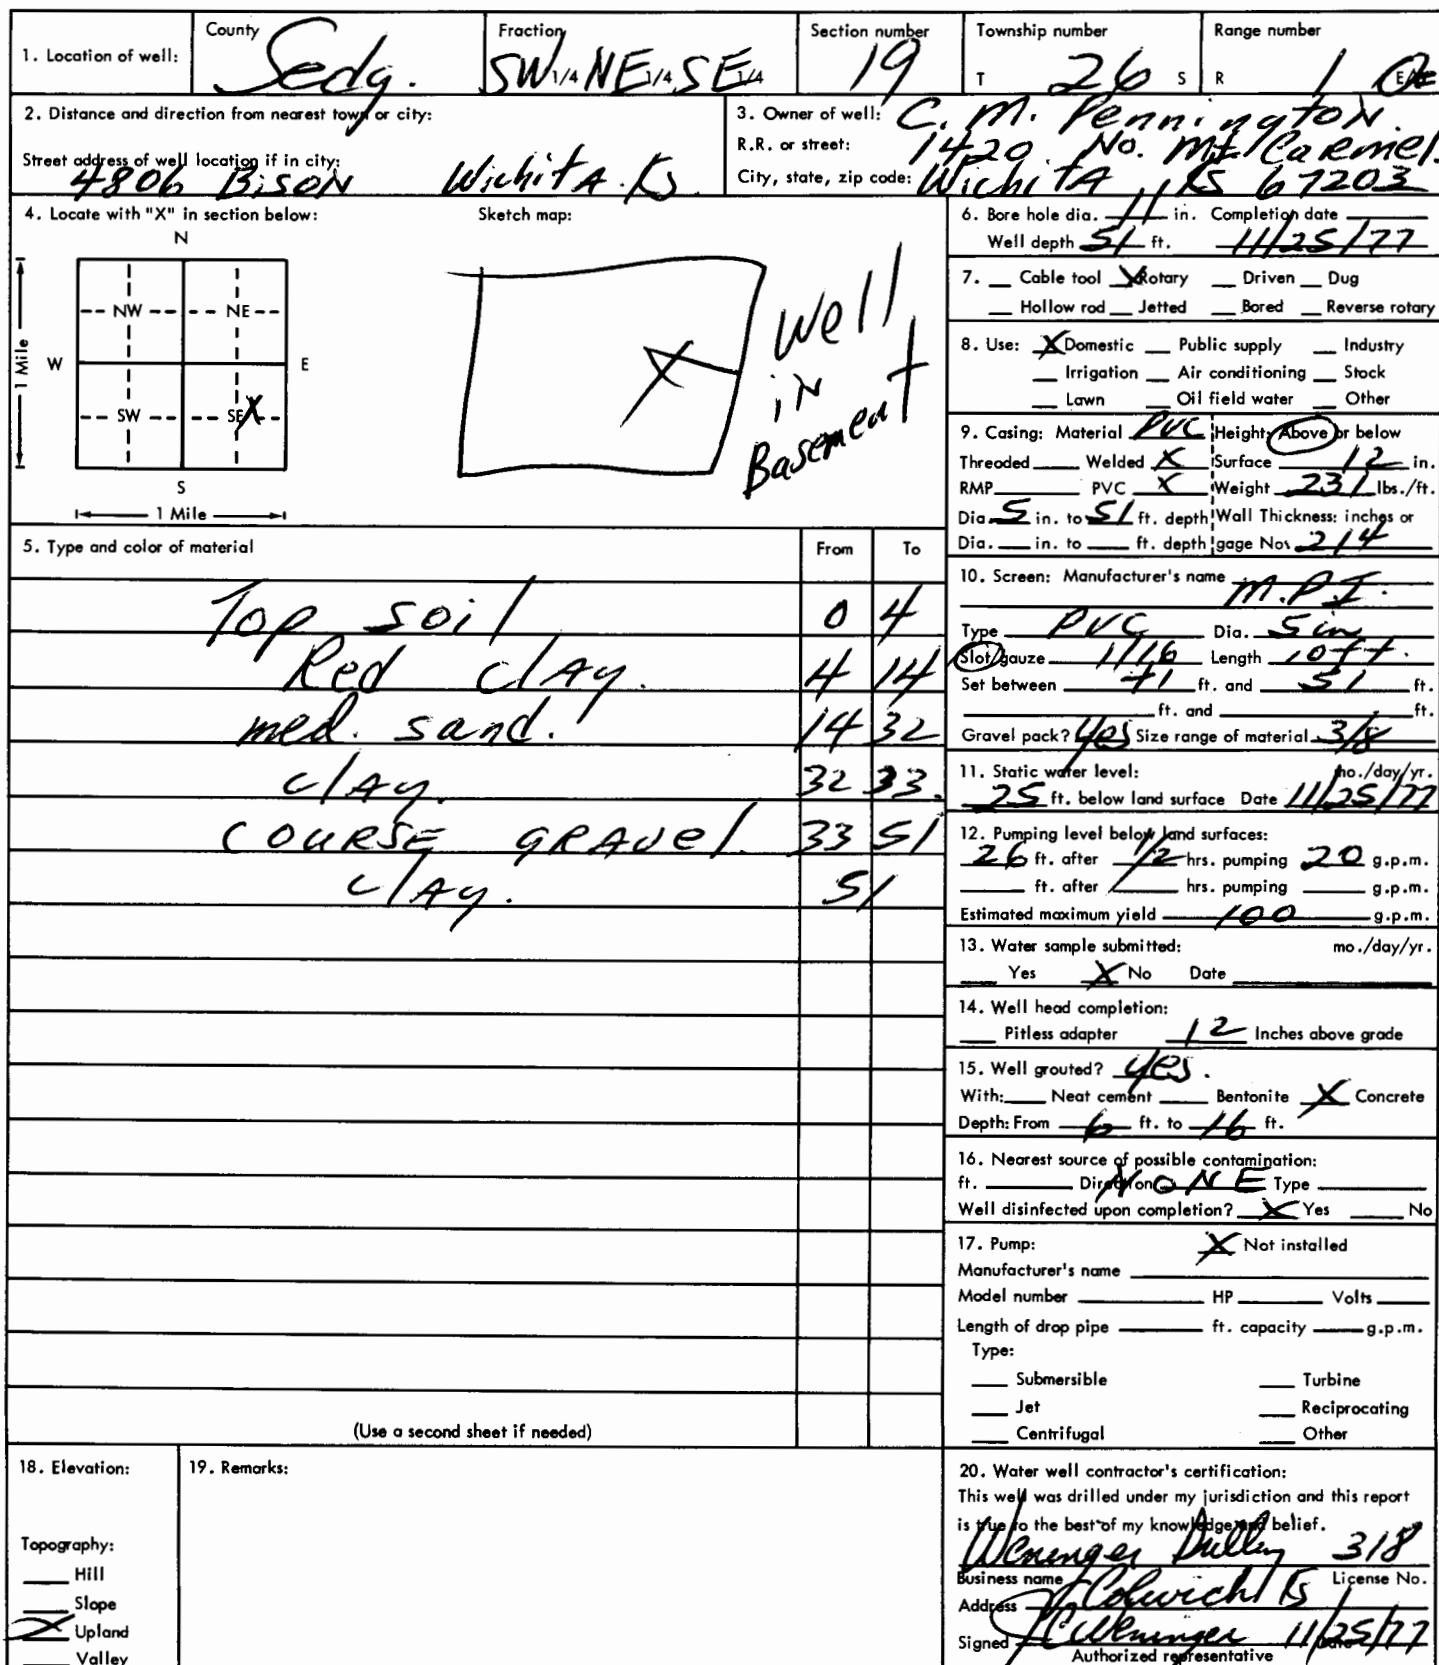 1. Location of well: County Sedg. Fraction SW 1/4 NE 1/4 SE 1/4 Section number 19 Township number T 26 S Range number R 1 E/W
2. Distance and direction from nearest town or city:
Street address of well location if in city:
4806 Bison Wichita. Ks
3. Owner of well: C. M. Pennington
R.R. or street: 1420 No. Mt. Carmel.
City, state, zip code: Wichita, Ks 67203
4. Locate with "X" in section below: Sketch map:
N
NW NE
W E
SW SE X
S
1 Mile
1 Mile
X
Well
in
Basement
5. Type and color of material From To
Top soil 0 4
Red clay. 4 14
med. sand. 14 32
clay. 32 33.
COURSE GRAVEL. 33 51
clay. 51
(Use a second sheet if needed)
6. Bore hole dia. 11 in. Completion date
Well depth 51 ft. 11/25/77
7. __ Cable tool X Rotary __ Driven __ Dug
__ Hollow rod __ Jetted __ Bored __ Reverse rotary
8. Use: X Domestic __ Public supply __ Industry
__ Irrigation __ Air conditioning __ Stock
__ Lawn __ Oil field water __ Other
9. Casing: Material PVC Height: Above or below
Threaded __ Welded X Surface 12 in.
RMP __ PVC X Weight 231 lbs./ft.
Dia. 5 in. to 51 ft. depth Wall Thickness: inches or
Dia. __ in. to __ ft. depth gage No. 214
10. Screen: Manufacturer's name
M.P.I.
Type PVC Dia. 5 in
Slot/gauze 1/16 Length 10 ft.
Set between 41 ft. and 51 ft.
__ ft. and __ ft.
Gravel pack? Yes Size range of material 3/8
11. Static water level: mo./day/yr.
25 ft. below land surface Date 11/25/77
12. Pumping level below land surfaces:
26 ft. after 1/2 hrs. pumping 20 g.p.m.
__ ft. after __ hrs. pumping __ g.p.m.
Estimated maximum yield 100 g.p.m.
13. Water sample submitted: mo./day/yr.
__ Yes X No Date __
14. Well head completion:
__ Pitless adapter 12 Inches above grade
15. Well grouted? yes.
With: __ Neat cement __ Bentonite X Concrete
Depth: From 6 ft. to 16 ft.
16. Nearest source of possible contamination:
ft. __ Direction NONE Type __
Well disinfected upon completion? X Yes __ No
17. Pump: X Not installed
Manufacturer's name __
Model number __ HP __ Volts __
Length of drop pipe __ ft. capacity __ g.p.m.
Type:
__ Submersible __ Turbine
__ Jet __ Reciprocating
__ Centrifugal __ Other
18. Elevation:
Topography:
__ Hill
__ Slope
X Upland
__ Valley
19. Remarks:
20. Water well contractor's certification:
This well was drilled under my jurisdiction and this report
is true to the best of my knowledge and belief.
Weninger 318
Business name License No.
Address Colwich Ks
Signed Weninger 11/25/77
Authorized representative